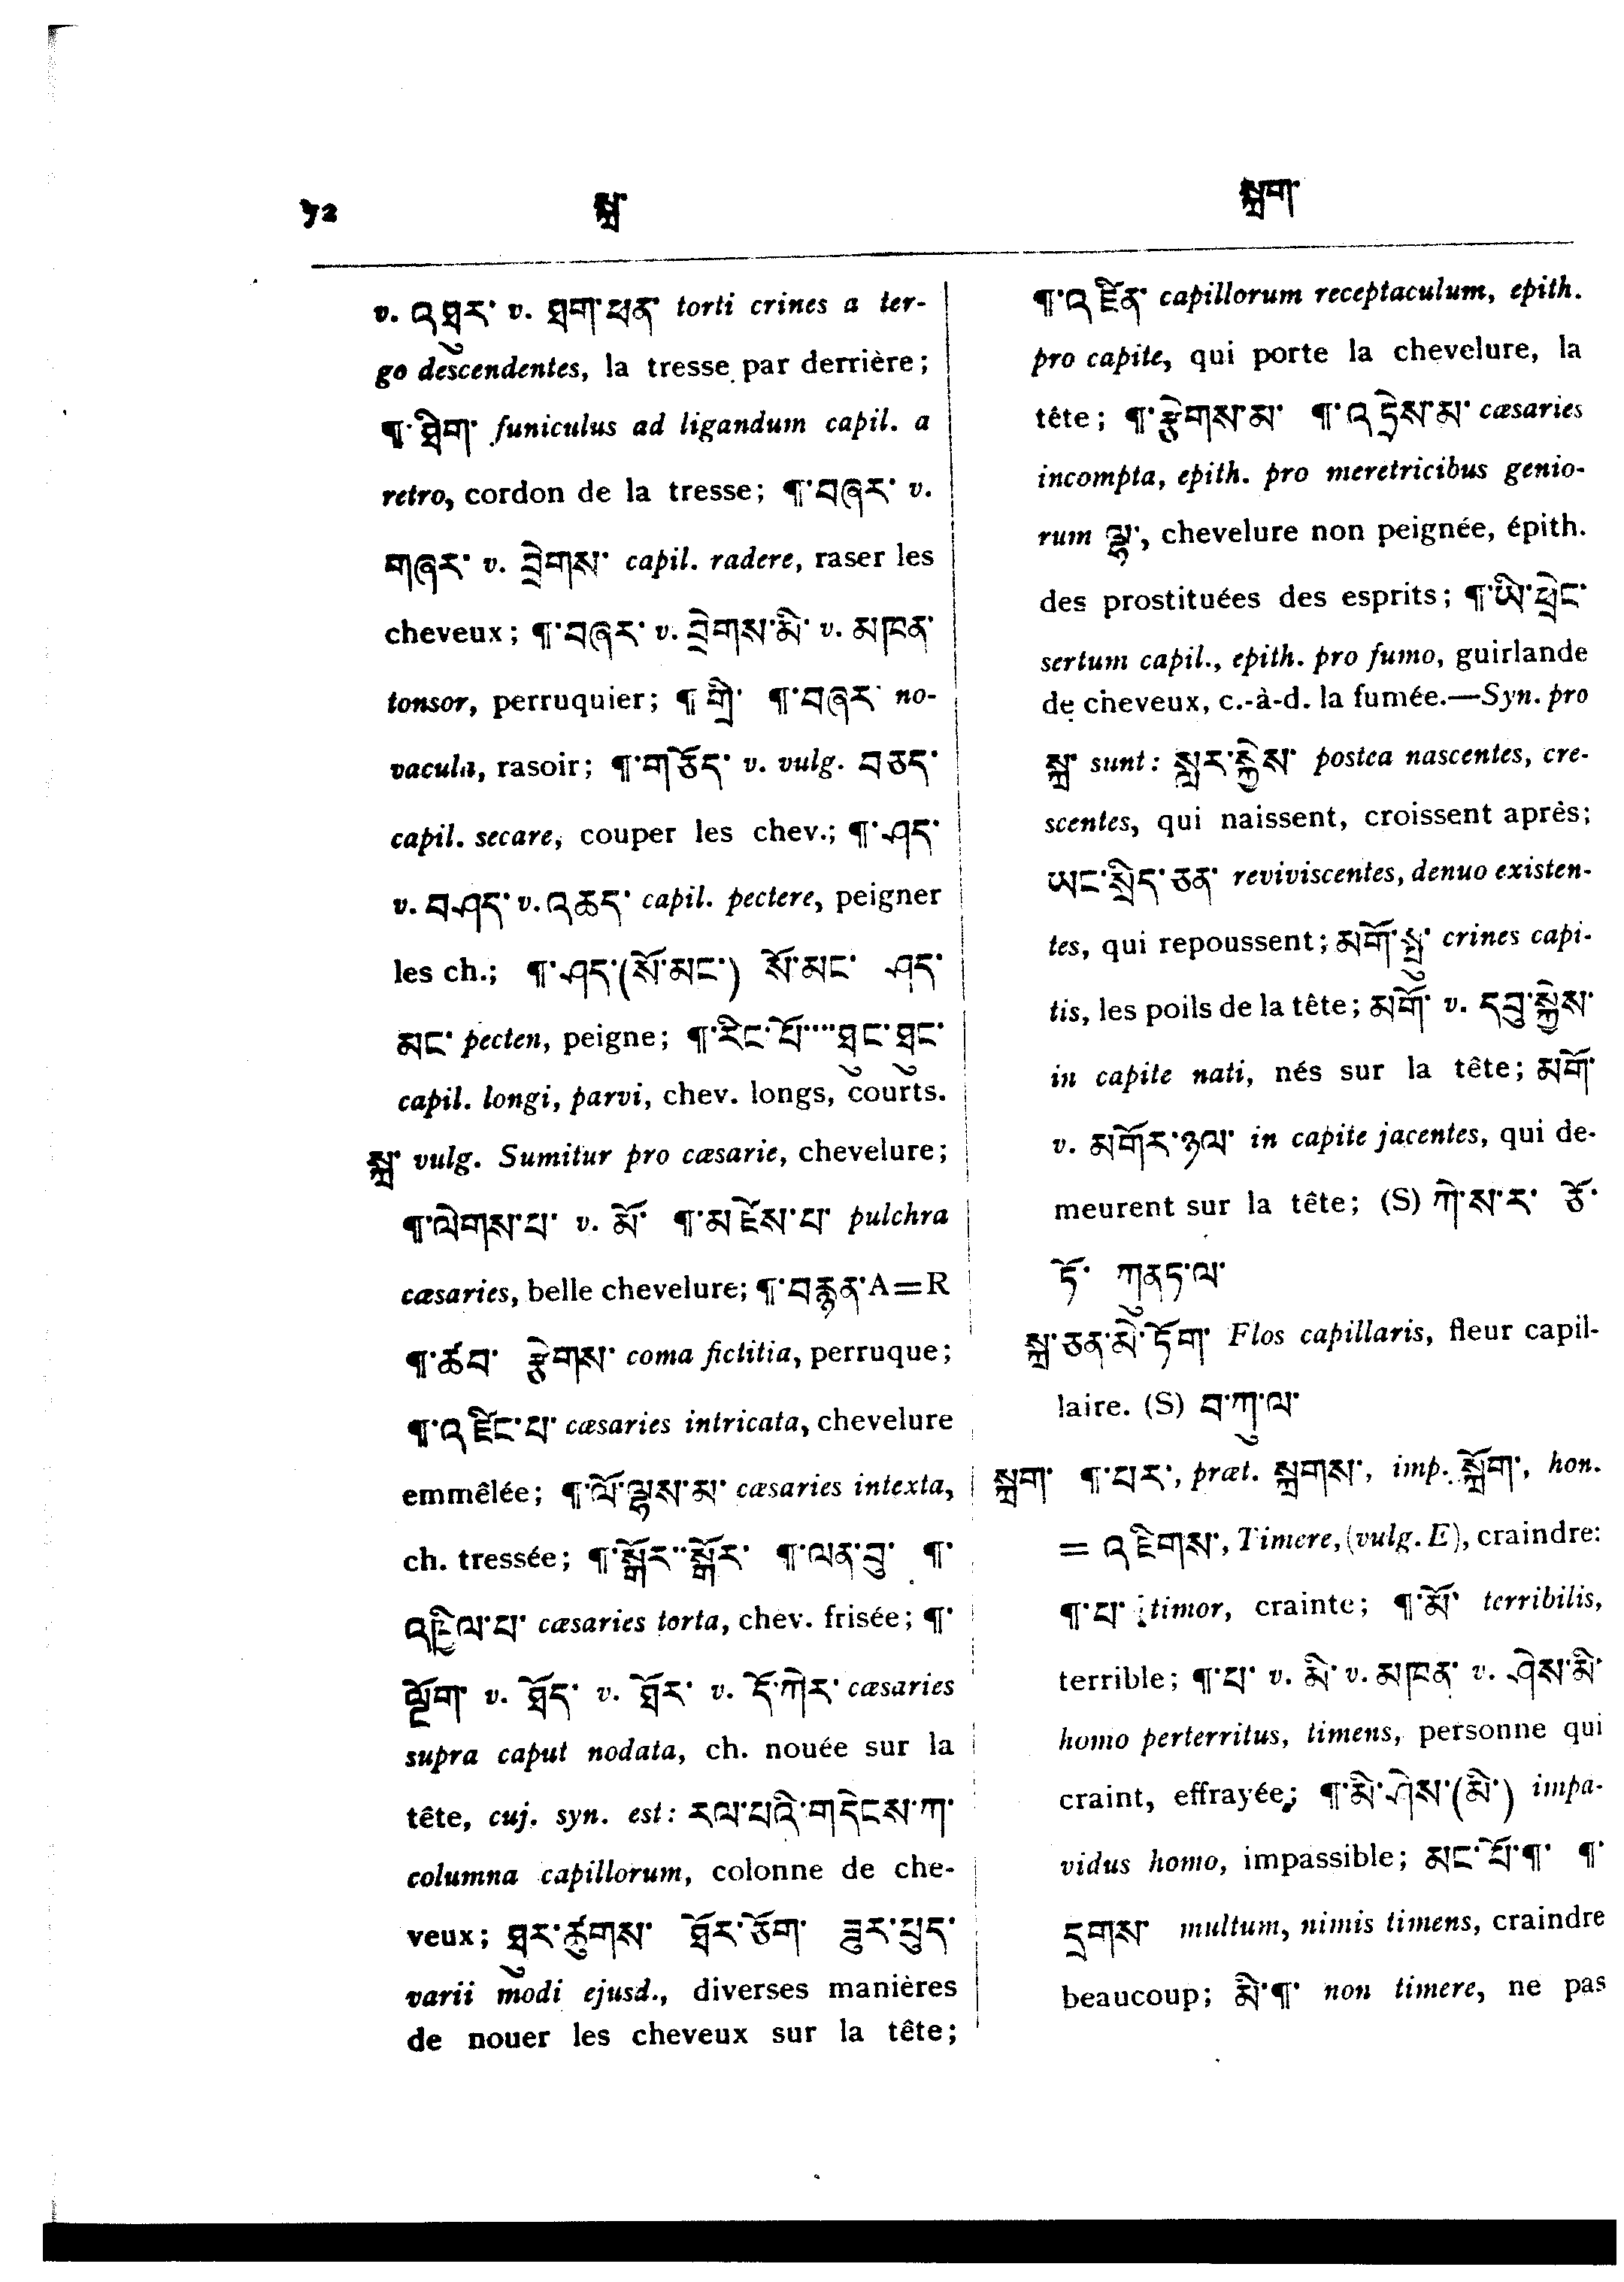 72 སྐྲ་ སྐྲག་
v. འཐུར་ v. ཐག་ཕན་ torti crines a ter-
go descendentes, la tresse par derrière;
¶་ཐིག་ funiculus ad ligandum capil. a
retro, cordon de la tresse; ¶་བཞར་ v.
གཞར་ v. བྲེགས་ capil. radere, raser les
cheveux; ¶་བཞར་ v. བྲེགས་མི་ v. མཁན་
tonsor, perruquier; ¶ གྲི་ ¶་བཞར་ no-
vacula, rasoir; ¶་གཅོད་ v. vulg. བཅད་
capil. secare, couper les chev.; ¶་ཤད་
v. བཤད་ v. འཆད་ capil. pectere, peigner
les ch.; ¶་ཤད་(སོ་མང་) སོ་མང་ ཤད་
མང་ pecten, peigne; ¶་རིང་པོ་་་་ཐུང་ཐུང་
capil. longi, parvi, chev. longs, courts.
སྐྲ་ vulg. Sumitur pro cæsarie, chevelure;
¶་ལེགས་པ་ v. མོ་ ¶་མཛེས་པ་ pulchra
cæsaries, belle chevelure; ¶་བརྙན་A=R
¶་ཚབ་ རྩེགས་ coma fictitia, perruque;
¶་འཛིང་པ་ cæsaries intricata, chevelure
emmêlée; ¶་ལོ་ལྷས་མ་ cæsaries intexta,
ch. tressée; ¶་སྒོར་་སྒོར་ ¶་ལན་བུ་ ¶་
འཇིལ་པ་ cæsaries torta, chev. frisée; ¶་
ལྕོག་ v. ཐོད་ v. ཐོར་ v. དོ་ཀེར་ cæsaries
supra caput nodata, ch. nouée sur la
tête, cuj. syn. est: རལ་པའི་གདེངས་ཀ་
columna capillorum, colonne de che-
veux; ཐུར་ཚུགས་ ཐོར་ཅོག་ ཟུར་ཕུད་
varii modi ejusd., diverses manières
de nouer les cheveux sur la tête;
¶་འཛིན་ capillorum receptaculum, epith.
pro capite, qui porte la chevelure, la
tête; ¶་རྩེགས་མ་ ¶་འདྲེས་མ་ cæsaries
incompta, epith. pro meretricibus genio-
rum ལྷ་, chevelure non peignée, épith.
des prostituées des esprits; ¶་ཡི་ཕྲེང་
sertum capil., epith. pro fumo, guirlande
de cheveux, c.-à-d. la fumée.—Syn. pro
སྐྲ་ sunt: སླར་སྐྱེས་ postea nascentes, cre-
scentes, qui naissent, croissent après;
ཡང་སྲིད་ཅན་ reviviscentes, denuo existen-
tes, qui repoussent; མགོ་སྤུ་ crines capi-
tis, les poils de la tête; མགོ་ v. དབུ་སྐྱེས་
in capite nati, nés sur la tête; མགོ་
v. མགོར་ཉལ་ in capite jacentes, qui de-
meurent sur la tête; (S) ཀེ་ས་ར་ ཙོ་
ཏོ་ ཀུནད་ལ་
སྐྲ་ཅན་མེ་ཏོག་ Flos capillaris, fleur capil-
laire. (S) བ་ཀུ་ལ་
སྐྲག་ ¶་པར་, præt. སྐྲགས་, imp. སྐྲོག་, hon.
= འཇིགས་, Timere, (vulg. E), craindre:
¶་པ་ timor, crainte; ¶་མོ་ terribilis,
terrible; ¶་པ་ v. མི་ v. མཁན་ v. ཤེས་མི་
homo perterritus, timens, personne qui
craint, effrayée; ¶་མི་ཤེས་(མི་) impa-
vidus homo, impassible; མང་པོ་¶་ ¶་
དྲགས་ multum, nimis timens, craindre
beaucoup; མི་¶་ non timere, ne pas